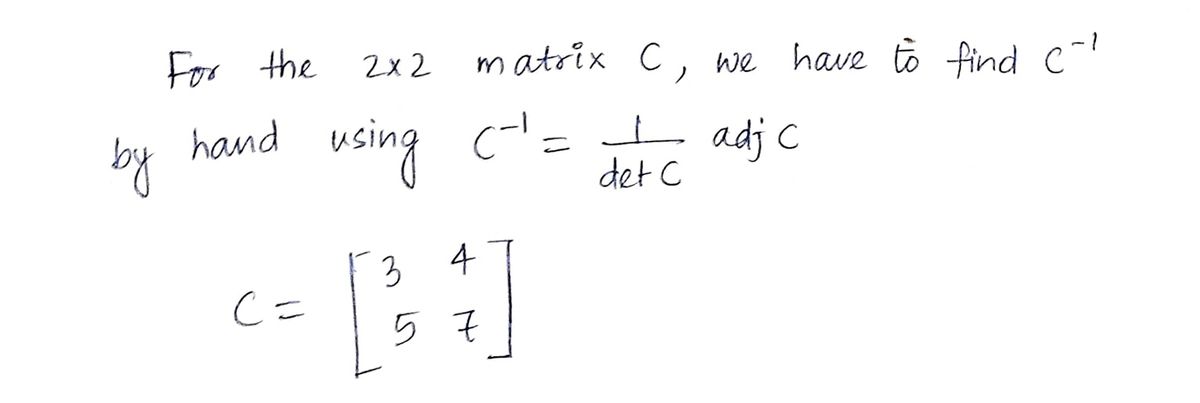 For the 2x2 matrix C, we have to find C⁻¹
by hand using C⁻¹ = 1/det C adj C
C = [3 4
5 7]